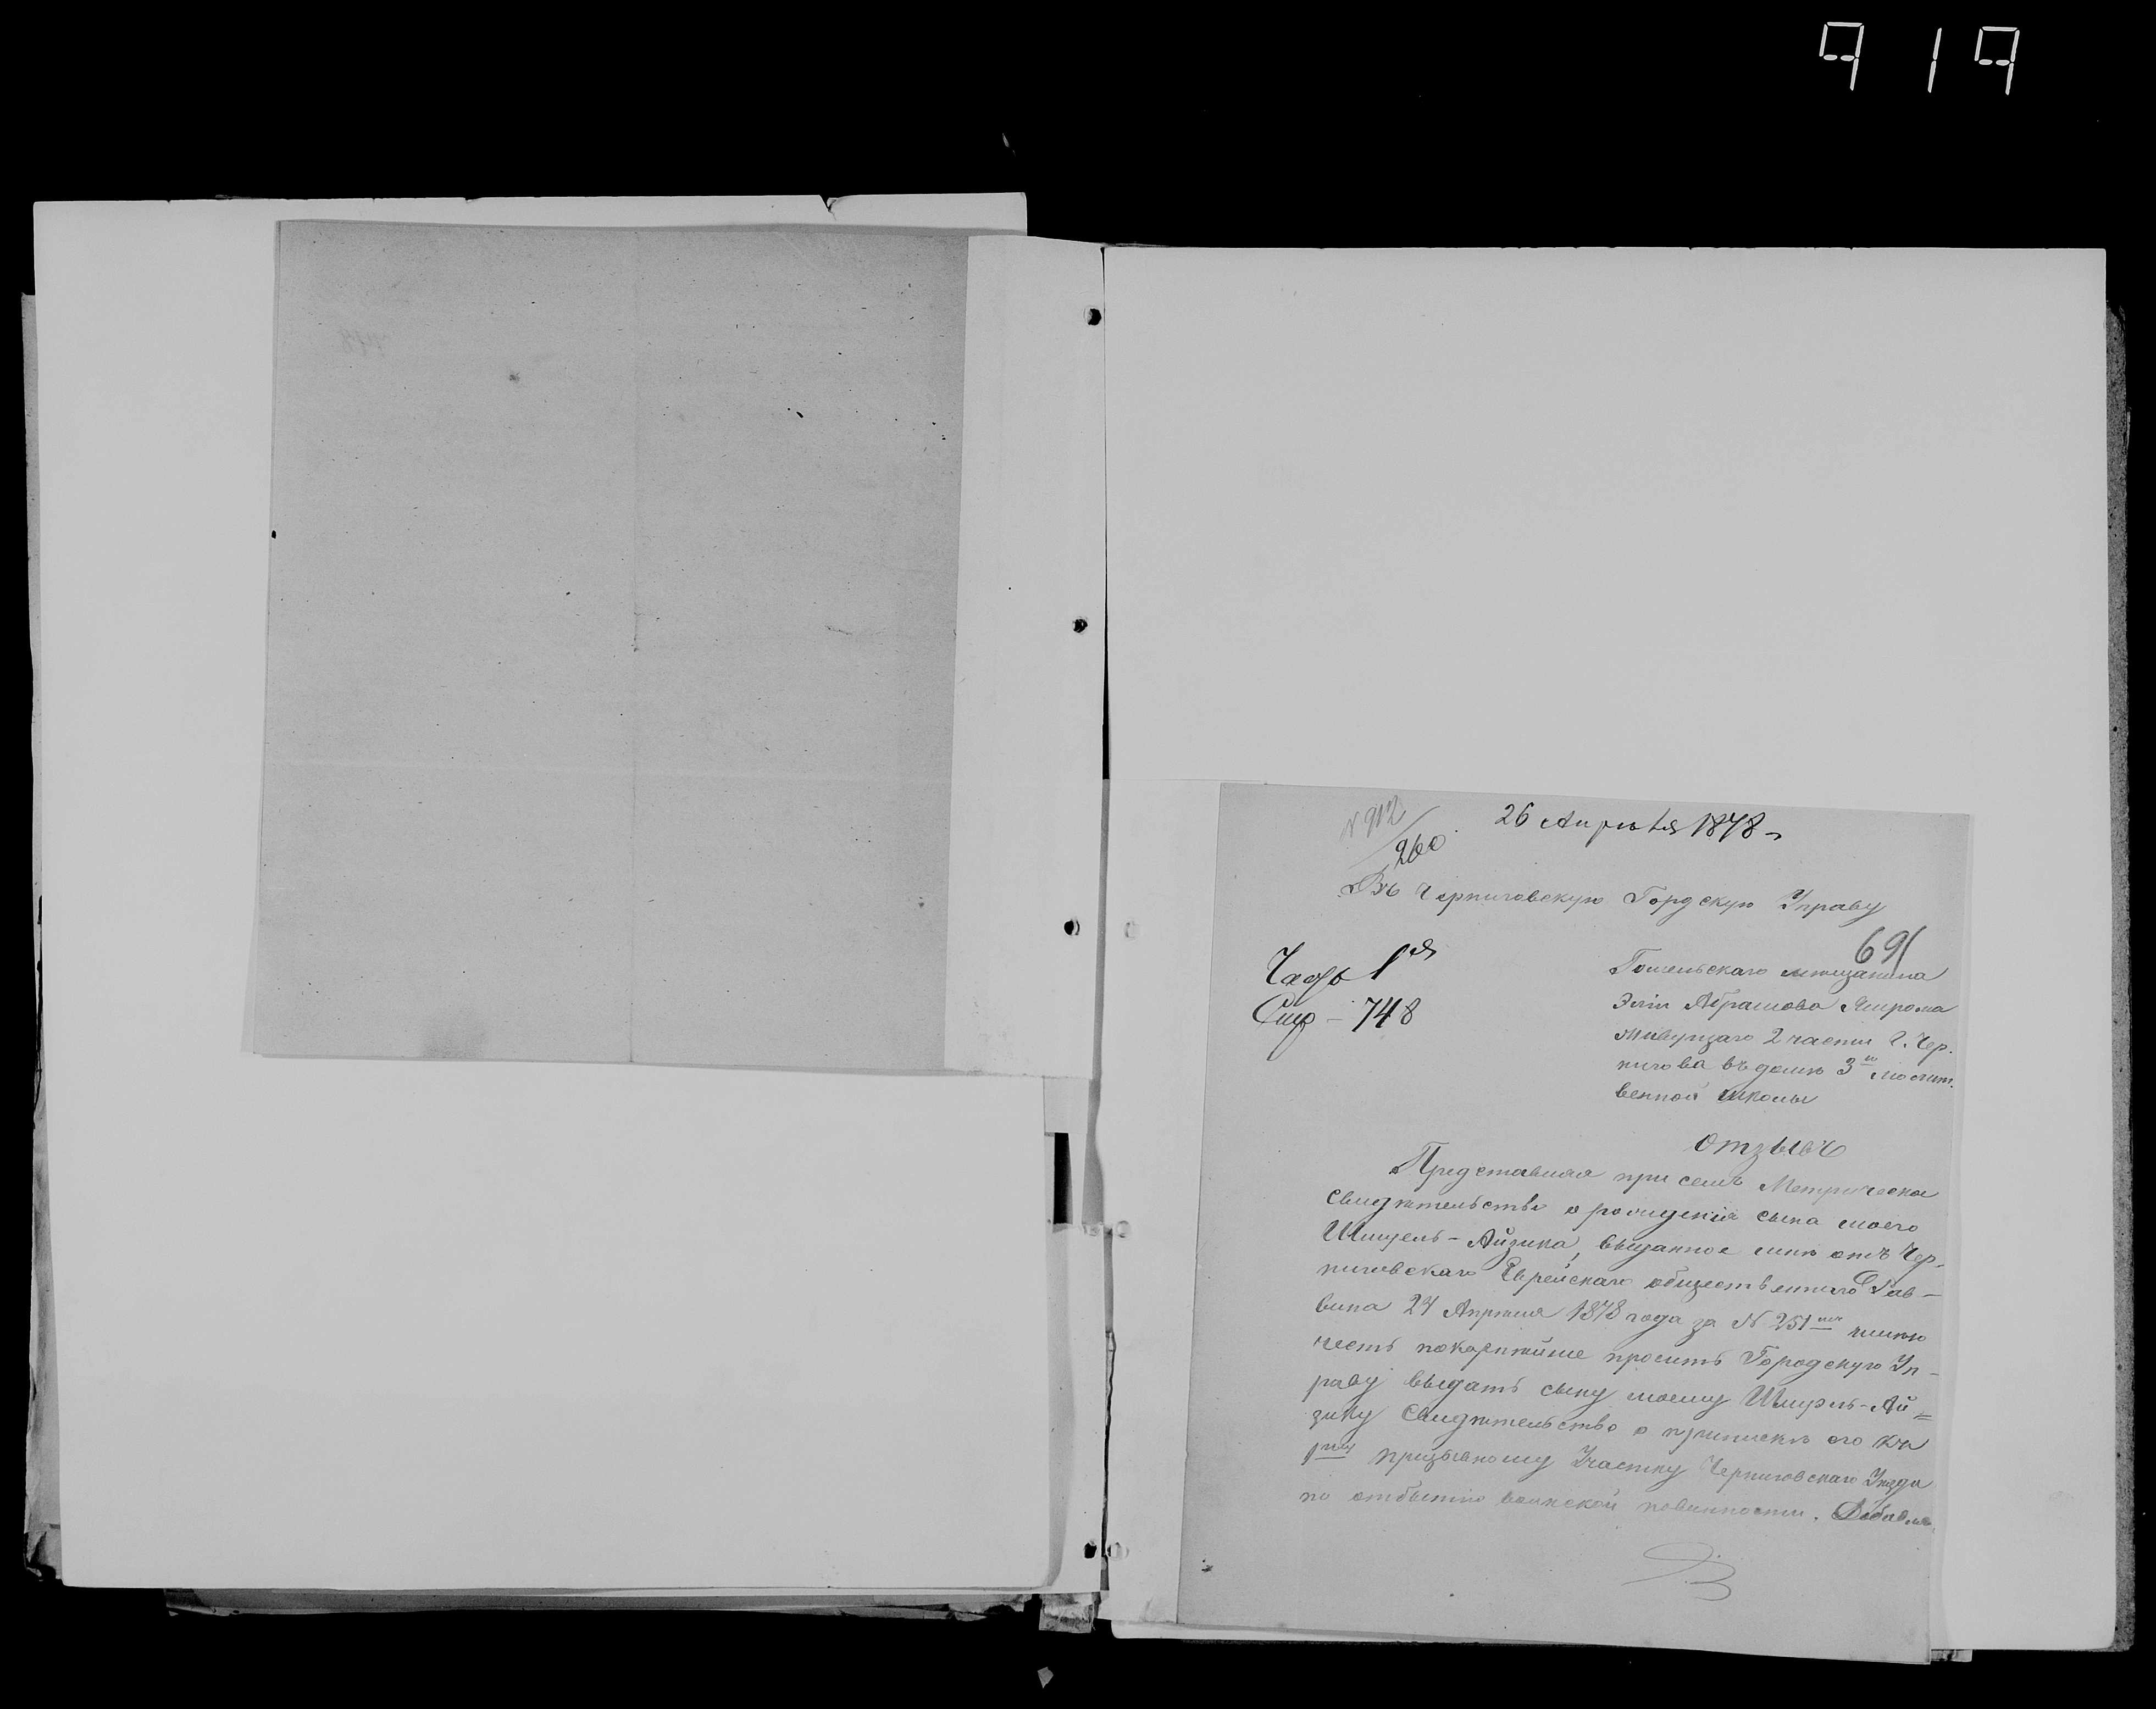 919
N 912
26 Апрѣля 1878 г
260
Въ Черниговскую Гордскую Управу
691
1я
748
Гомельскаго мѣщанина
Эліи Абрамова
живущаго 2 части г. Чер.
нигова въ домѣ 3й молит.
венной школы
отзывъ
Представляя при семъ Метрическое
свидѣтельство о рожденіи сына моего
Айзика, выданное мнѣ отъ Чер-
ниговскаго Еврейскаго общественнаго Рав-
вина 24 Апрѣля 1878 года за N 251мъ имѣю
честь покорнѣйше просить Городскую Уп-
раву выдать сыну моему Ай=
зику Свидѣтельство о припискѣ его къ
1му призывному Участку Черниговскаго Уѣзда
по отбытію воинской повинности.